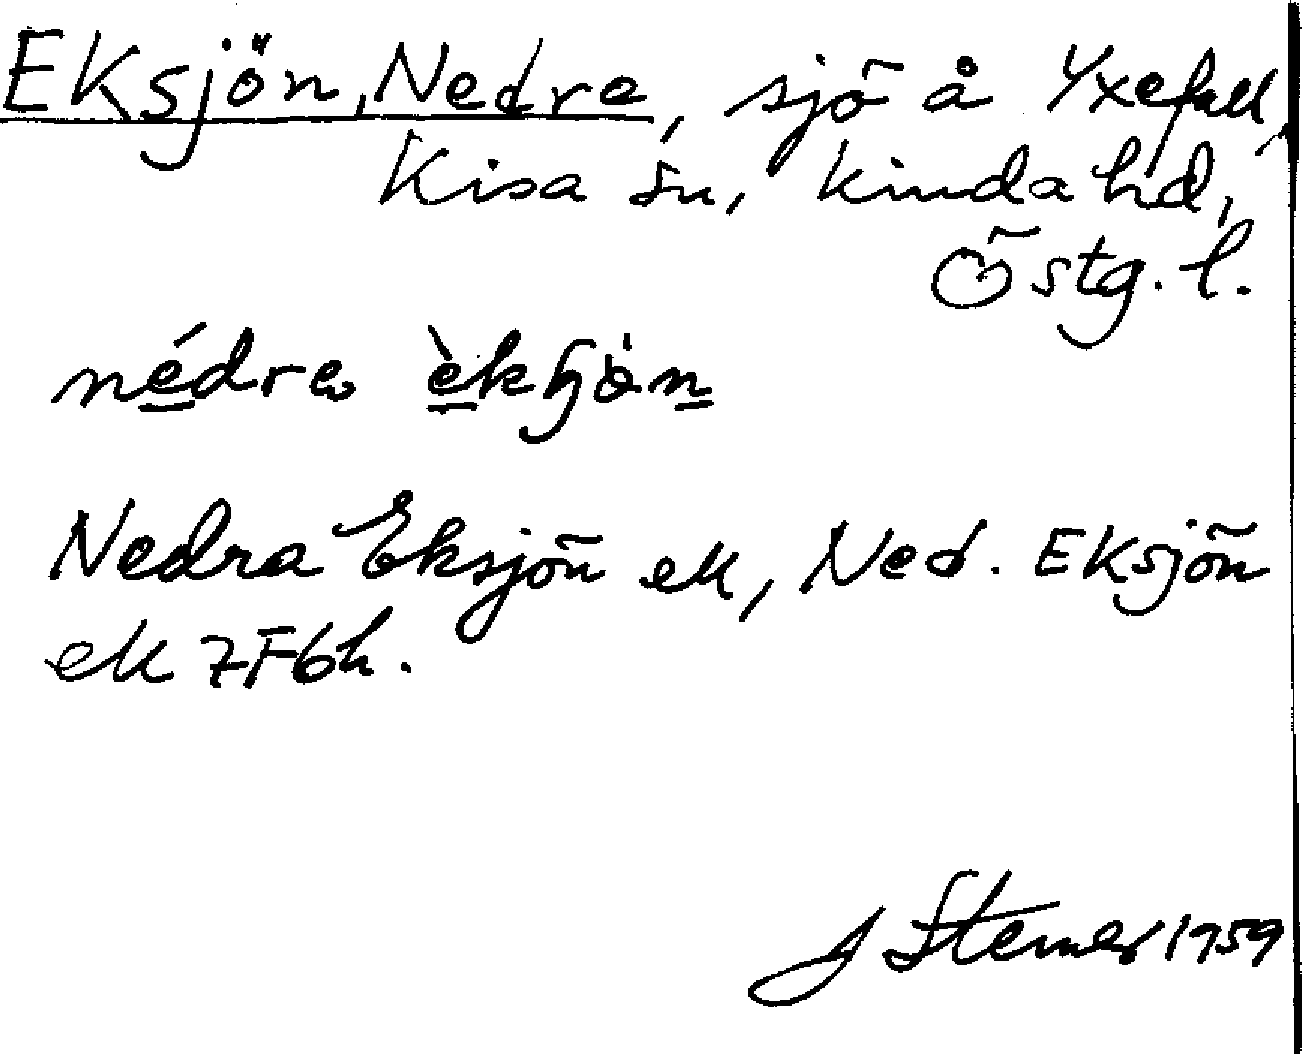 Eksjön, Nedre, sjö å Yxefall,
Kisa sn, Kinda hd,
Östg. l.
nédrə èkʃö̀n
Nedra Eksjön ek, Ned. Eksjön
ek 7F6h.
J Sterner 1959